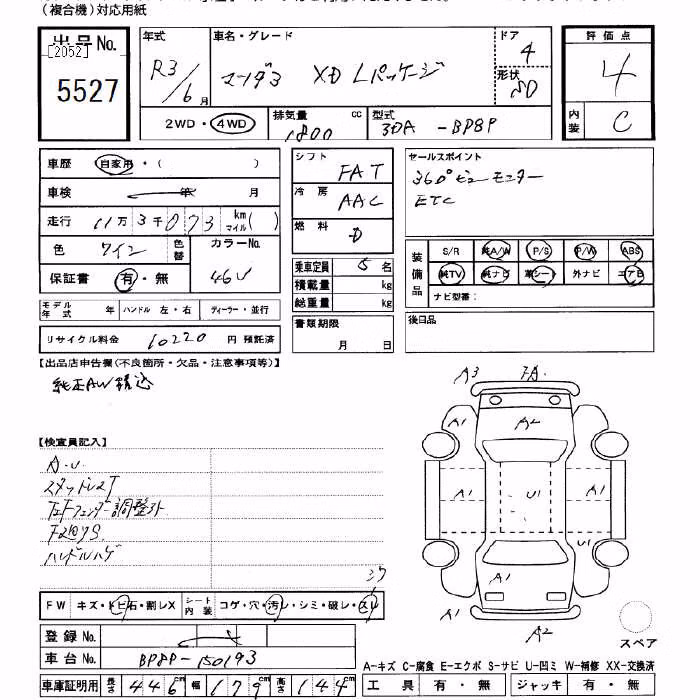 (複合機)対応用紙
出品No.
[2052]
5527
年式
R3/6月
車名・グレード
マツダ3 XD Lパッケージ
ドア
4
形状
SD
評価点
4
内装
C
2WD・4WD
排気量
1800 cc
型式
3DA-BP8P
車歴 自家用・( )
車検 年 月
走行 11万3千073 km マイル( )
色 ワイン
色替
カラーNo.
46V
保証書 有・無
モデル年式 年
ハンドル 左・右
ディーラー・並行
リサイクル料金 10220 円預託済
シフト FAT
冷房 AAC
燃料 D
乗車定員 5名
積載量 kg
総重量 kg
書類期限
月 日
セールスポイント
360°ビューモニター
ETC
装備品
S/R 純A/W P/S P/W ABS
純TV 純ナビ 革シート 外ナビ エアB
ナビ型番:
後日品
【出品店申告欄(不良箇所・欠品・注意事項等)】
純正AW積込
【検査員記入】
A.U.
スタッドレスT
ハンドルハゲ
FW キズ・トビ石・割レX
シート内装 コゲ・穴・汚レ・シミ・破レ・スレ
登録No.
車台No. BP8P-150193
車庫証明用 長さ 446cm 幅 179cm 高さ 144cm
A3 FA
A1 A2
A1 U1 A1
A1 U1
A1
A1 A2
スペア
A-キズ C-腐食 E-エクボ S-サビ U-凹ミ W-補修 XX-交換済
工具 有・無 ジャッキ 有・無